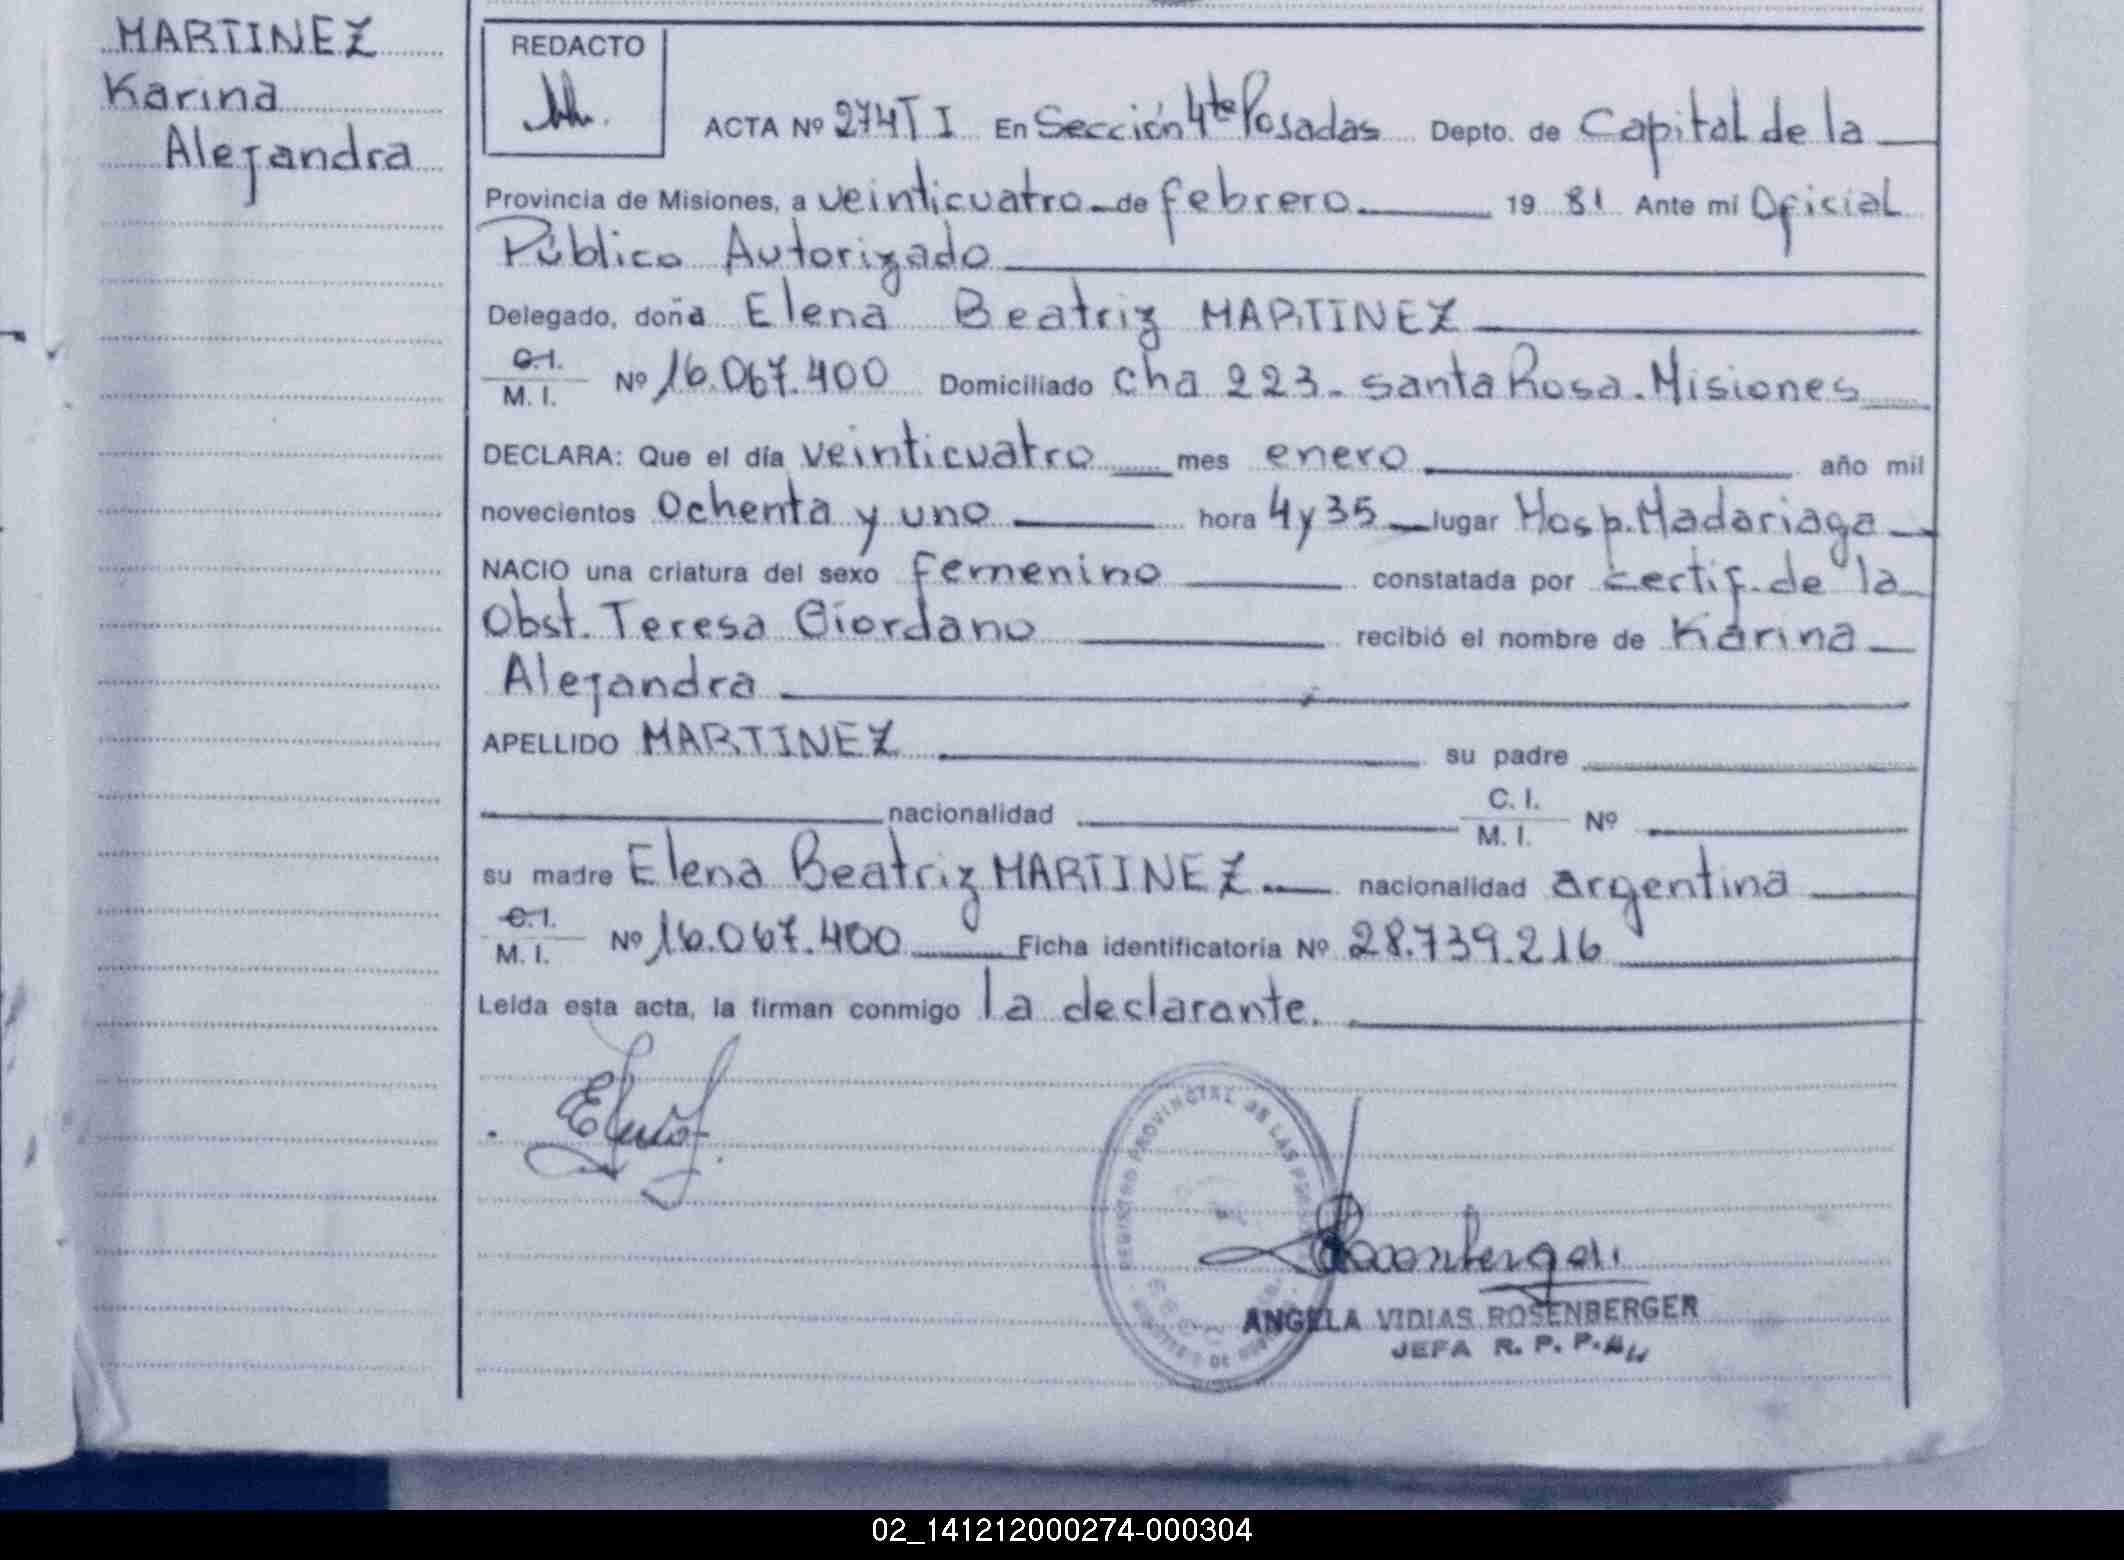 MARTINEZ
Karina
Alejandra
REDACTO
ACTA Nº 274 T I En Sección 4ta Posadas Depto. de Capital de la
Provincia de Misiones, a veinticuatro de febrero 19 81 Ante mi Oficial
Público Autorizado
Delegado, doña Elena Beatriz MARTINEZ
C.I.
M. I. Nº 16.067.400 Domiciliado cha 223- santa Rosa. Misiones
DECLARA: Que el día veinticuatro mes enero año mil
novecientos Ochenta y uno hora 4 y 35 lugar Hosp. Madariaga
NACIO una criatura del sexo femenino constatada por certif. de la
Obst. Teresa Giordano recibió el nombre de Karina
Alejandra
APELLIDO MARTINEZ su padre
nacionalidad C. I.
M. I. Nº
su madre Elena Beatriz MARTINEZ nacionalidad argentina
C.I.
M. I. Nº 16.067.400 Ficha identificatoria Nº 28.739.216
Leída esta acta, la firman conmigo la declarante.
REGISTRO PROVINCIAL DE LAS
ANGELA VIDIAS ROSENBERGER
JEFA R. P. P.
02_141212000274-000304